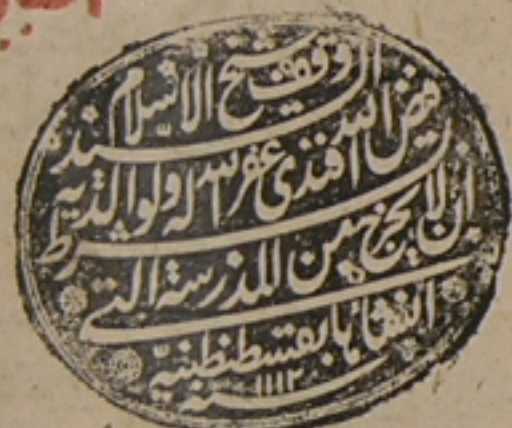 وقف شيخ الاسلام
السيد فيض الله
افندى غفر الله له ولوالديه
بشرط
ان لا يخرج من المدرسة التى
انشأها بقسطنطينيه
سنه ١١١٢